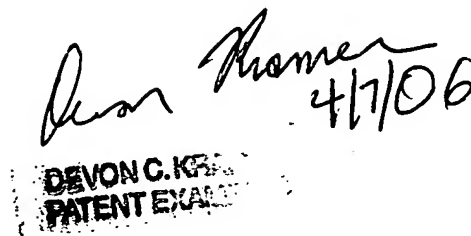 Devon Kramer
4/7/06
DEVON C. KRA
PATENT EXAM